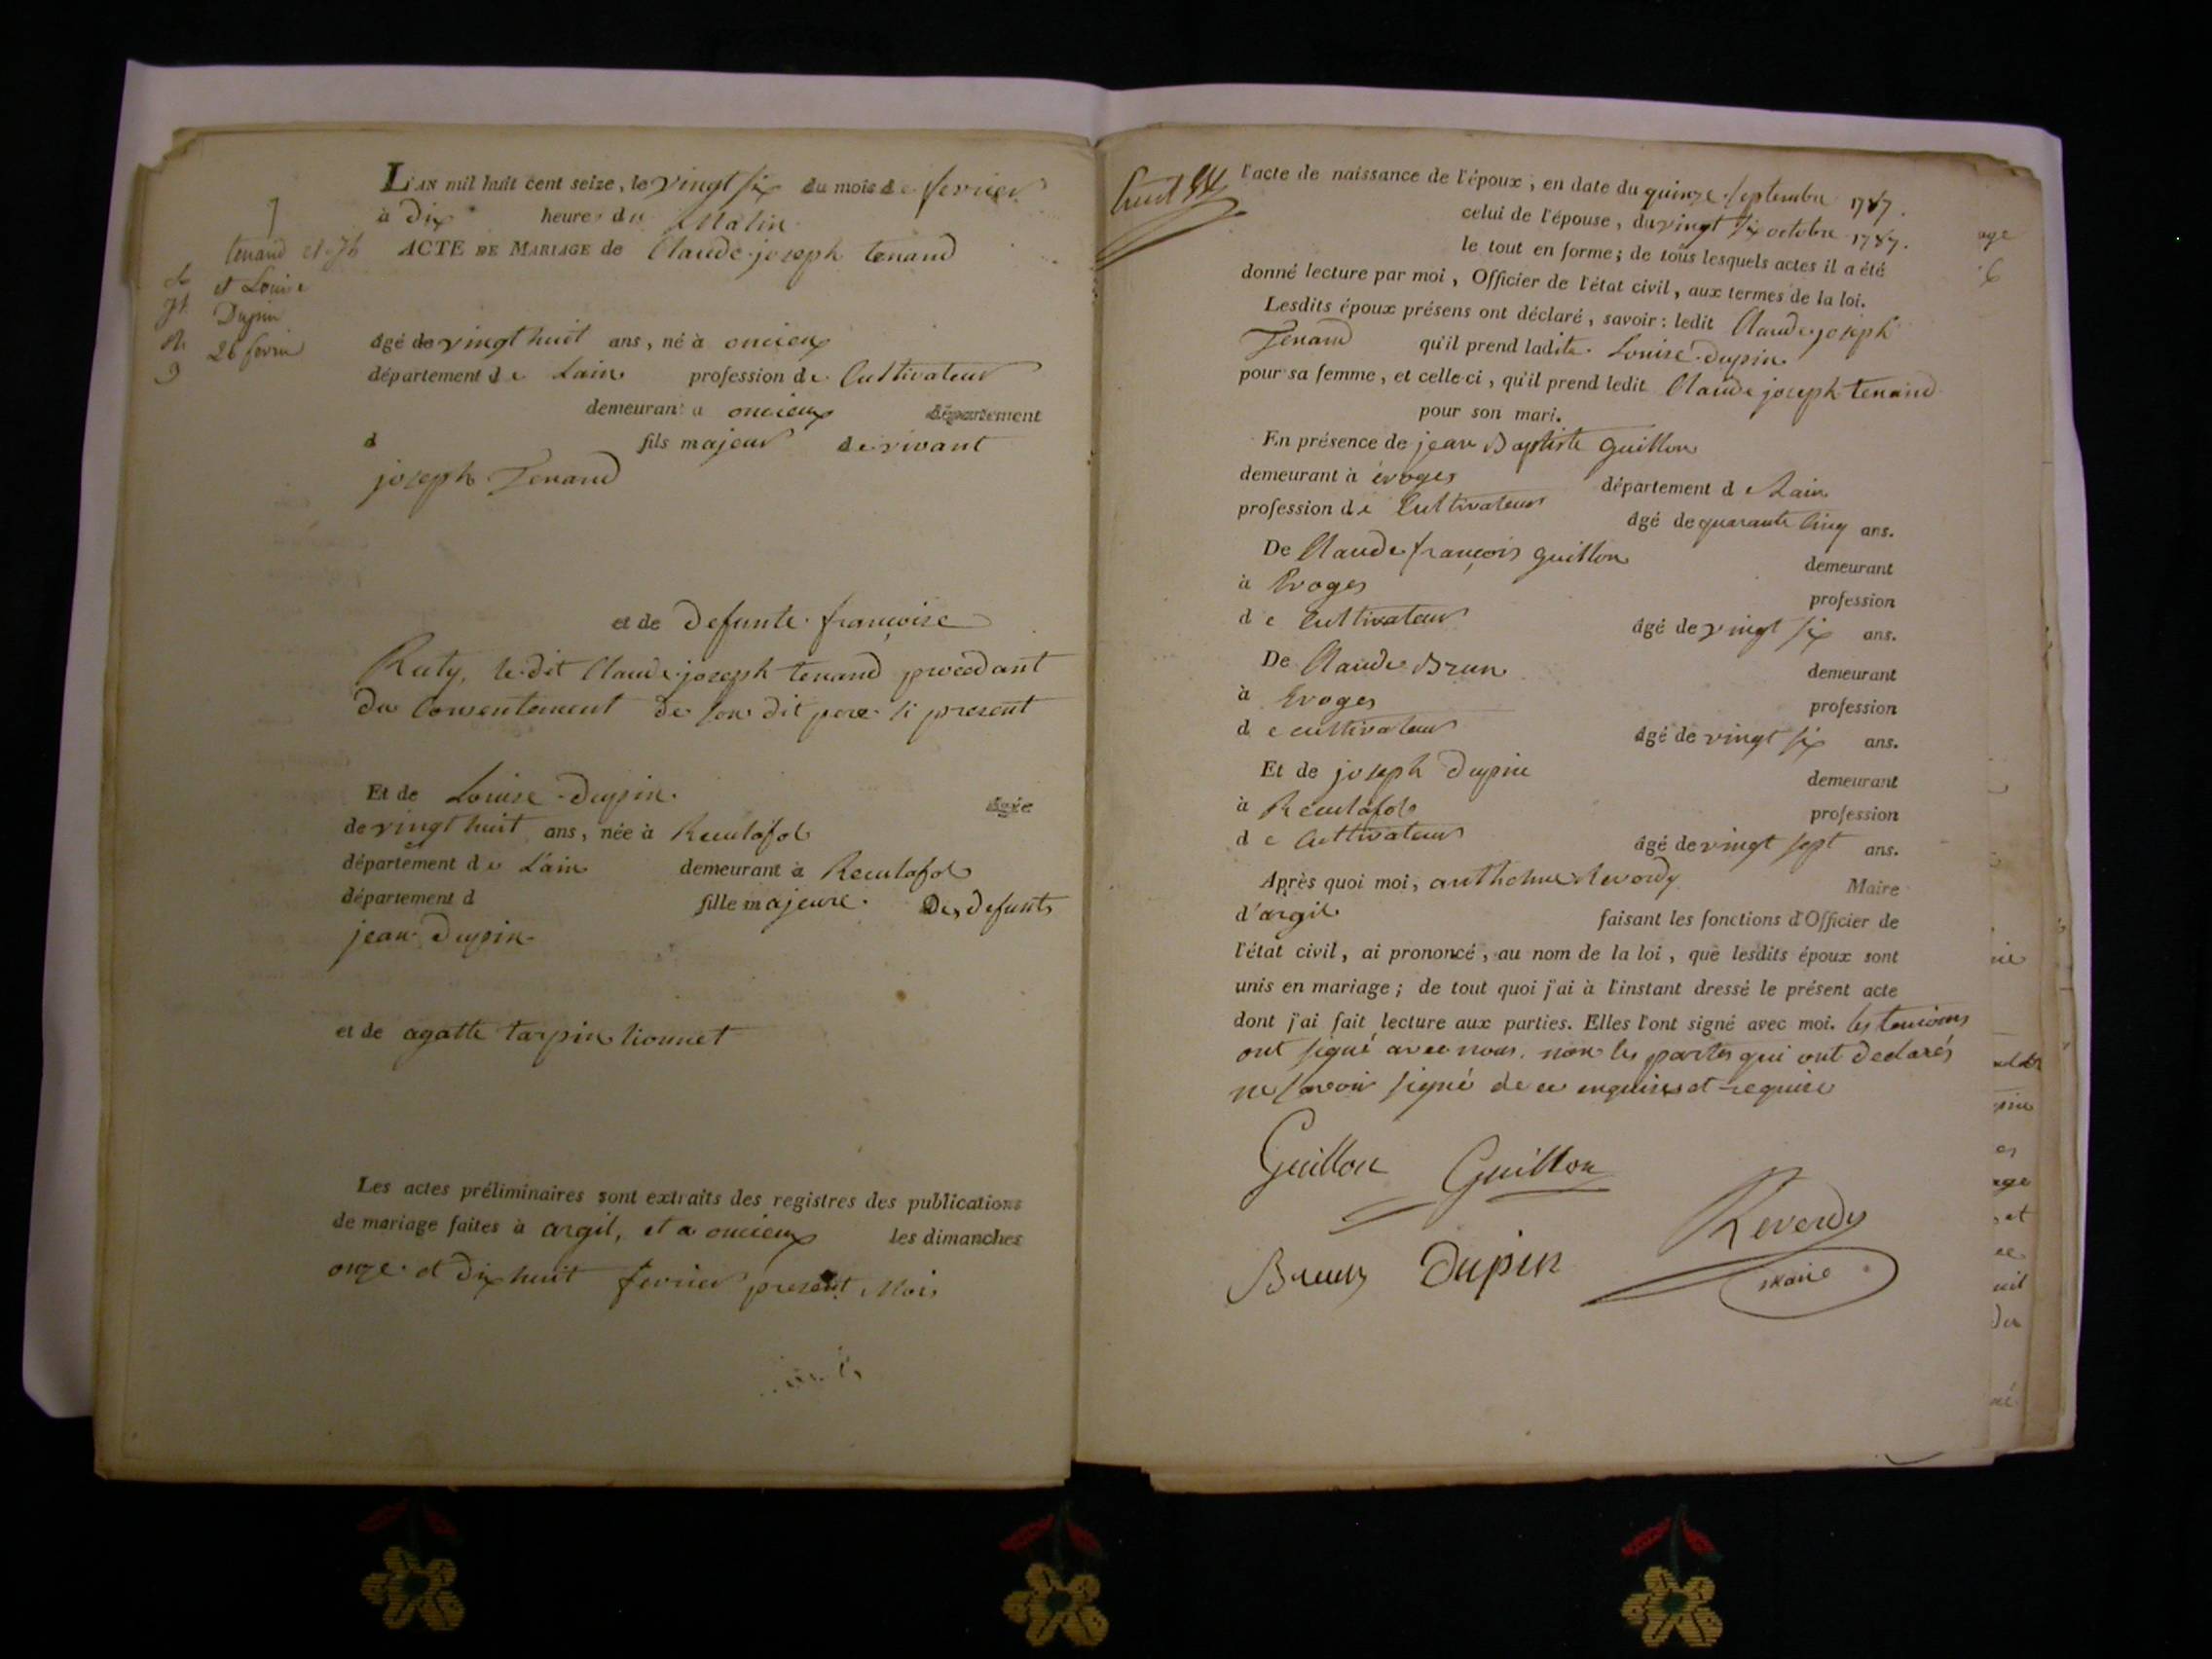 L'AN mil huit cent seize, le vingt six du mois de fevrier
à dix heures du Matin
ACTE DE MARIAGE de Claude joseph tenand
1
tenand cl. Jh
et Louise
Dupin
26 fevrier
âgé de vingt huit ans, né à oncieux
département de Lain profession de Cultivateur
demeurant a oncieux département
d fils majeur de vivant
joseph Tenand
et de Defunte francoise
Ruty, le dit Claude joseph tenand procedant
du Consentement de son dit pere si present
Et de Louise Dupin âgée
de vingt huit ans, née à Reculafol
département de L'ain demeurant à Reculafol
département d fille majeure Des defunts
jean Dupin
et de agatte tarpin lionnet
Les actes préliminaires sont extraits des registres des publications
de mariage faites à argil, et a oncieux les dimanches
onze et dix huit fevrier present Mois
l'acte de naissance de l'époux, en date du quinze septembre 1787.
celui de l'épouse, du vingt six octobre 1787.
le tout en forme; de tous lesquels actes il a été
donné lecture par moi, Officier de l'état civil, aux termes de la loi.
Lesdits époux présens ont déclaré, savoir: ledit Claude joseph
Tenand qu'il prend ladite Louise dupin
pour sa femme, et celle-ci, qu'il prend ledit Claude joseph tenand
pour son mari.
En présence de jean Baptiste guillon
demeurant à évoges département de Lain
profession de Cultivateur âgé de quarante Cinq ans.
De Claude françois guillon demeurant
à Evoges profession
de Cultivateur âgé de vingt six ans.
De Claude Brun demeurant
à Evoges profession
de cultivateur âgé de vingt six ans.
Et de joseph Dupin demeurant
à Reculafol profession
de Cultivateur âgé de vingt sept ans.
Après quoi moi, anthelme Reverdy Maire
d'argil faisant les fonctions d'Officier de
l'état civil, ai prononcé, au nom de la loi, que lesdits époux sont
unis en mariage; de tout quoi j'ai à l'instant dressé le présent acte
dont j'ai fait lecture aux parties. Elles l'ont signé avec moi. les temoins
ont signé avec nous, non les parties qui ont declarés
ne savoir signé de ce enquises et requise
Guillon Guillon
Reverdy
Brun Dupin
maire